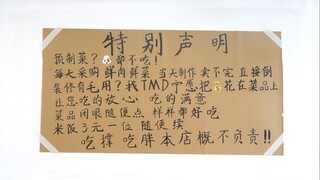 特别声明
预制菜?🐶都不吃!
每天采购 鲜肉鲜菜 当天制作 卖不完 直接倒
装修有毛用?我TMD宁愿把💰花在菜品上
让您吃的放心 吃的满意
菜品闭眼随便点 样样都好吃
米饭3元一位 随便续
吃撑 吃胖本店概不负责!!